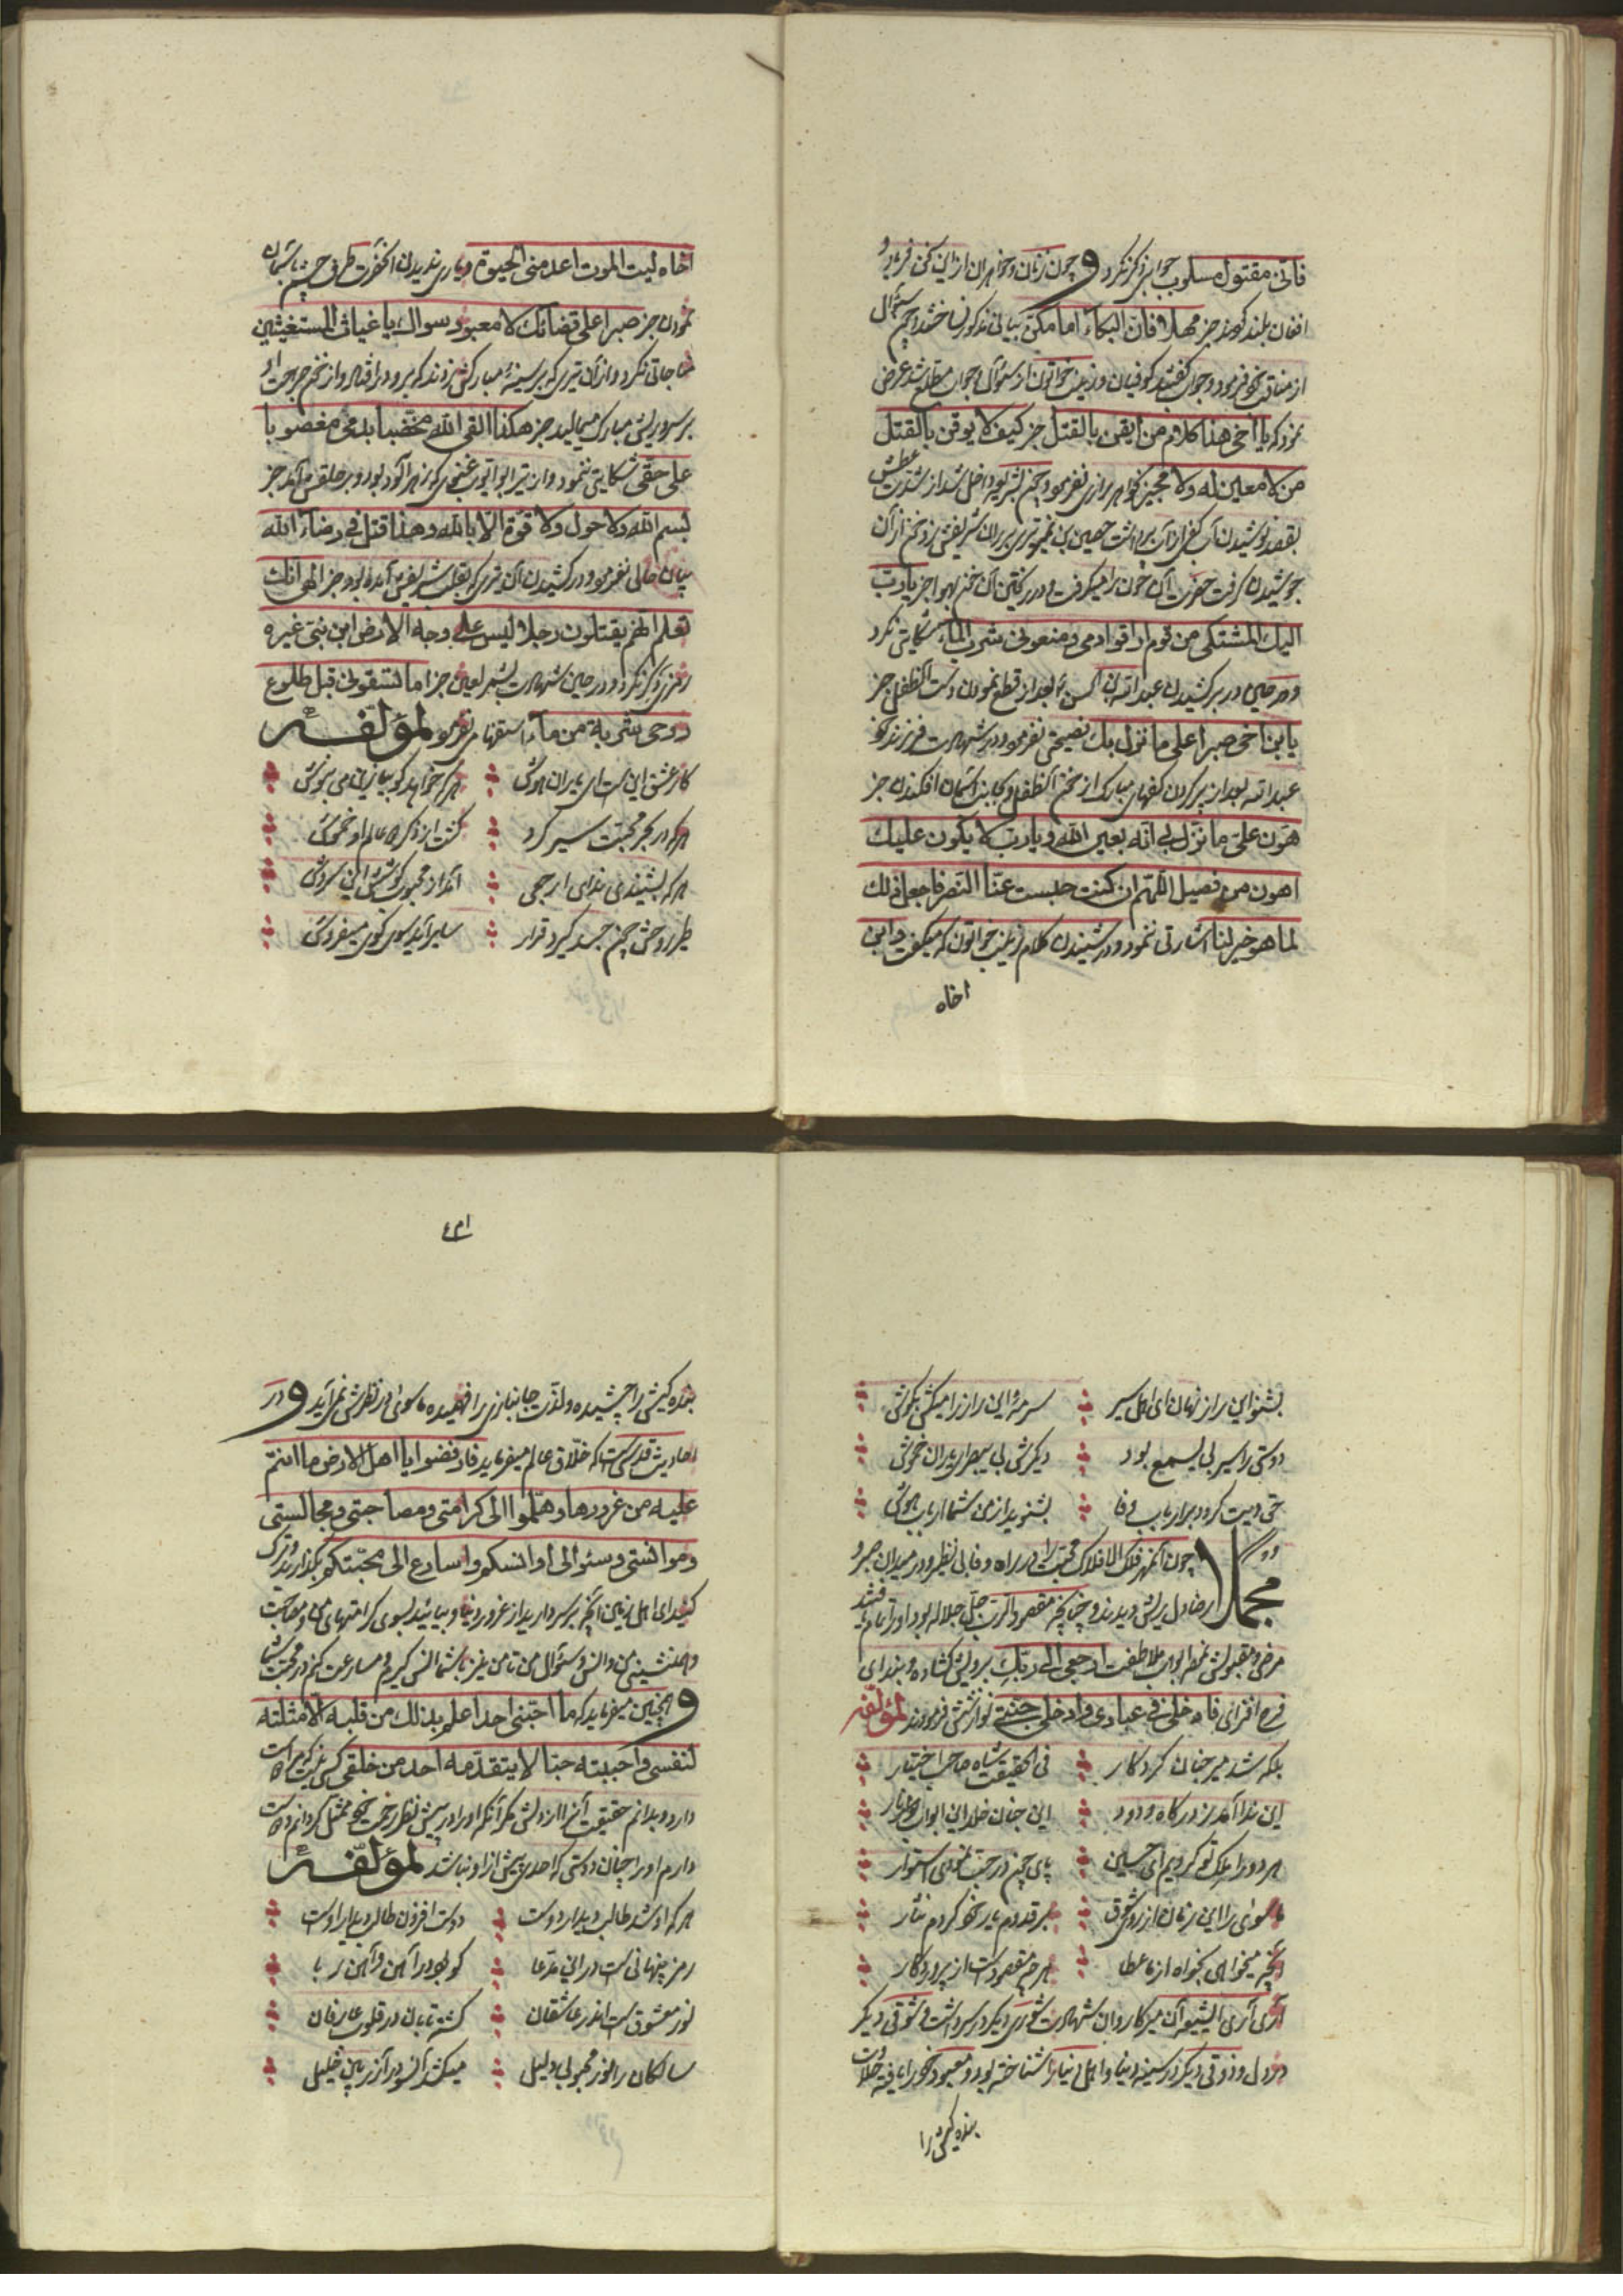 فانی مقتول مسلوب جوابی ذکر نکرد و چون زنان و خواهران از این سخن فریاد و
افغان بلند کردند جز مهلا فان البکاء امامکن بیانی مذکور نساختند و چون سئوال
از مناقب خود فرمود و جواب گفتند کوفیان و زینب خواتون از سئوال و جواب مطلع شد عرض
نمود که یا اخی هذا کلام من ایقن بالقتل جز کیف لا یوقن بالقتل
من لا معین له ولا مجیر بخواهر رازی نفرمود و چون بشریعه داخل شد از شدت عطش
بقصد نوشیدن آب کفی از آب برداشت حصین بن نمیر تیری بر دهان شریفش زد خون از آن
جوشیدن گرفت حضرت آن خون را میگرفت و در ریختن آن خون بهوا جز یا رب
الیک المشتکی من قوم اراقوا دمی و منعونی شرب الماء شکایتی نکرد
و در حین در بر کشیدن عبدالله بن الحسن بعد از قطع نمودن دست آنطفل جز
یا بن اخی صبرا علی ما نزل بک نصیحتی نفرمود و در شهادت فرزند خود
عبدالله بعد از پر کردن کفهای مبارک از خون آنطفل و بجانب آسمان افکندن جز
هون علی ما نزل بی انه بعین الله و یا رب لا یکون علیک
اهون من فصیل اللهم ان کنت حبست عنا النصر فاجعل ذلک
لما هو خیر لنا اشارتی ننمود و در شنیدن کلام زینب خواتون که میگفت وا بن
اخاه
اخاه لیت الموت اعدمنی الحیوة و یاری ندیدن آنحضرت طرف چشم باسمان
نمودن جز صبرا علی قضائک لا معبود سواک یا غیاث المستغیثین
مناجاتی نکرد و از آن تیری که بر سینهٔ مبارکش زدند که برو در افتاد و از خون جراحت او
بر سر و ریش مبارک میمالید جز هکذا القی الله مخضبا بدمی مغصوبا
علی حقی شکایتی ننمود و از تیر ابو ایوب غنوی که زهرآلود بود و بر حلقش آمد جز
بسم الله ولا حول ولا قوة الا بالله وهذا قتیل فی رضاء الله
بیان حالی نفرمود و در کشیدن آن تیری که بقلب شریفش آمده بود جز الهی انک
تعلم انهم یقتلون رجلا لیس علی وجه الارض ابن نبی غیره
رمزی ذکر نکرد و در حین شهادت بشمر لعین جز اما تسقونی قبل طلوع
روحی شربة من ماء استفهام نفرمود لمؤلفه
کار عشق این است ای یاران هوش هرکه خواهد گو بیا زین می بنوش
هرکه در بحر محبت سیر کرد گشت از ذکر دو عالم او خموش
هرکه بشنیدی ندای ارجعی آمد از محبوب گوشش این سروش
طیر روحش چون جسد گیرد قرار سایر آمد سوی کوی میفروش
بشنو این راز نهان ای اهل سیر سرمهٔ این راز را میکش بگوش
دوستی را سیر بی یسمع بود دیگرش بی یبصر ای یاران خموش
حق وصیت کرد بر ارباب وفا بشنوید از من شما ارباب هوش
مجملا چون آنمهر فلک الافلاک محبت را در راه وفا بی نظیر و در میدان صبر و
رضا دل ریش دیدند و چنانچه مقصود آن رب جل جلاله بود او را تمام یافتند
مرضی و مقبولش نموده ابواب ملاطفت ارجعی الی ربک برویش گشاده و بندای
فرح افزای فادخلی فی عبادی وادخلی جنتی نوازشش فرمودند لمؤلفه
بلکه شد میر جنان کردگار فی الحقیقت شاه صاحب اختیار
این ندا آمد ز درگاه ودود این جنان خلد این ابواب
هر دو را ملک تو کردیم ای حسین پای چون در جنت نمودی استوار
ماسوای را این زمان از روی شوق بر قدوم یار خود کردم نثار
آنچه میخواهی بخواه از ما عطا هرچه مقصودست از پروردگار
آری آری ایشیعه آن میر کاروان شهادت شوری دیگر در سر داشت و شوقی دیگر
در دل و ذوقی دیگر در سینه دنیا و اهل دنیا را شناخته بود و معبود خود را یافته حلاوت
بنده کیش را
بنده کیش را چشیده و لذت جانبازی را فهمیده ماسوی در نظرش نمی آید و در
احادیث قدسی است که خلاق عالم میفرماید فارفضوا یا اهل الارض ما انتم
علیه من غرورها وهلموا الی کرامتی ومصاحبتی ومجالستی
وموانستی وسئوالی اوانسکم واسارع الی محبتکم بگذارید و ترک
کنید ای اهل زمین آنچه بر سر دارید از غرور دنیا و بیائید بسوی کرامتهای من و مصاحبت
و همنشینی من و انس و سئوال من تا من نیز با شما انس گیرم و مسارعت کنم در محبت شما
و همچنین میفرماید که ما احبنی احد اعلم بذلک من قلبه الا مثلته
لنفسی واحببته حبا لا یتقدمه احد من خلقی کسی نیست که مرا دوست
دارد و بدانم حقیقت آنرا از دلش مگر آنکه او را در پیش نظر خود ممثل گردانم دوست
دارم او را چنان دوستی که احدی پیش از او نباشد لمؤلفه
هرکه او شد طالب دیدار دوست دوست افزون طالب دیدار اوست
رمز پنهانی ست در این مدعا کو بود در آهن و آهن ربا
نور معشوق ست اندر عاشقان گشته تابان در قلوب عارفان
سالکان را نور محبوبی دلیل میکشد آنسو در آذر چون خلیل